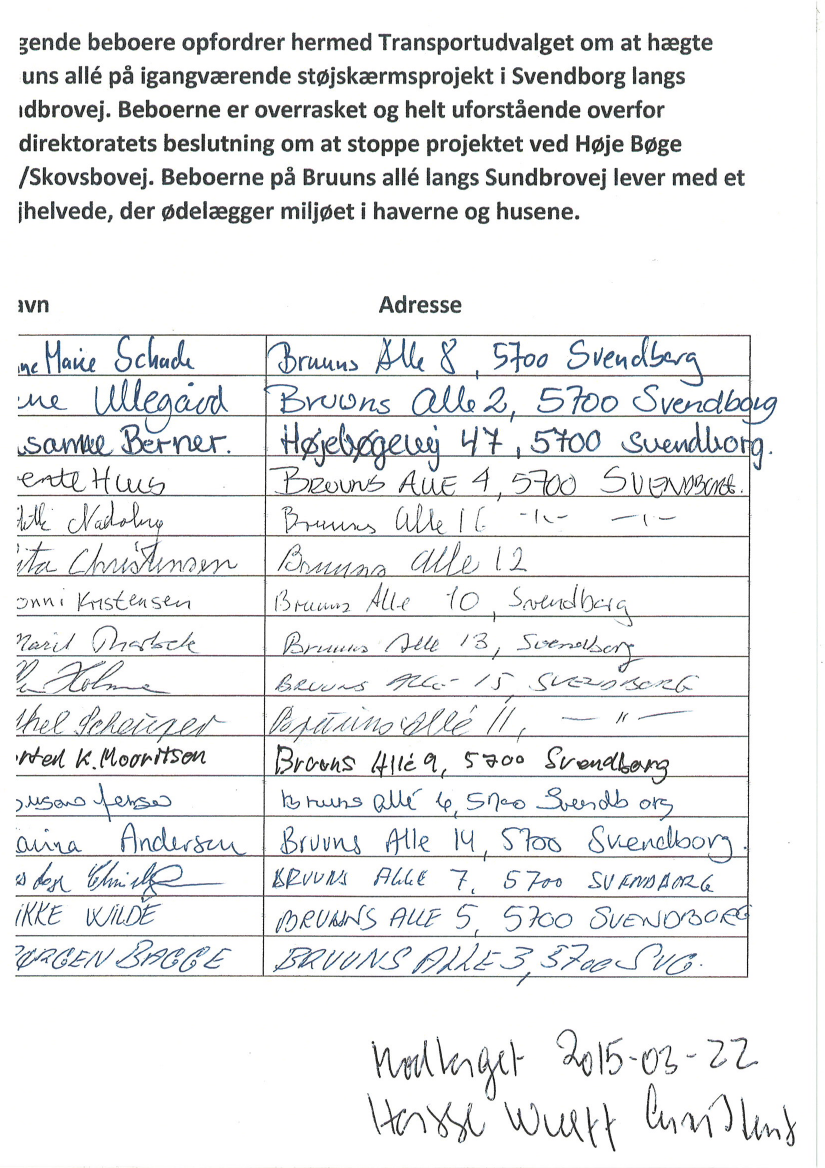 gende beboere opfordrer hermed Transportudvalget om at hægte
uns allé på igangværende støjskærmsprojekt i Svendborg langs
ıdbrovej. Beboerne er overrasket og helt uforstående overfor
direktoratets beslutning om at stoppe projektet ved Høje Bøge
/Skovsbovej. Beboerne på Bruuns allé langs Sundbrovej lever med et
jhelvede, der ødelægger miljøet i haverne og husene.
avn Adresse
ne Marie Schade Bruuns Alle 8, 5700 Svendborg
ne Ullegård Bruuns alle 2, 5700 Svendborg
usanne Berner. Højebøgevej 47, 5700 Svendborg.
ente Huus BRUUNS ALLE 4, 5700 SVENDBORG.
Bruuns Alle 16 -"- -"-
ita Christensen Bruuns alle 12
onni Kristensen Bruuns Alle 10, Svendborg
Marit Bruuns Alle 13, Svendborg
Holme BRUUNS ALLE 15, SVENDBORG
thel Scheuer Bruuns allé 11, -"-
rten K. Mouritsen Bruuns Allé 9, 5700 Svendborg
Bruuns allé 6, 5700 Svendborg
anna Andersen Bruuns Alle 14, 5700 Svendborg.
BRUUNS ALLE 7, 5700 SVENDBORG
IKKE WILDE BRUUNS ALLE 5, 5700 SVENDBORG
ØRGEN BAGGE BRUUNS ALLE 3, 5700 SVG.
Modtaget 2015-03-22